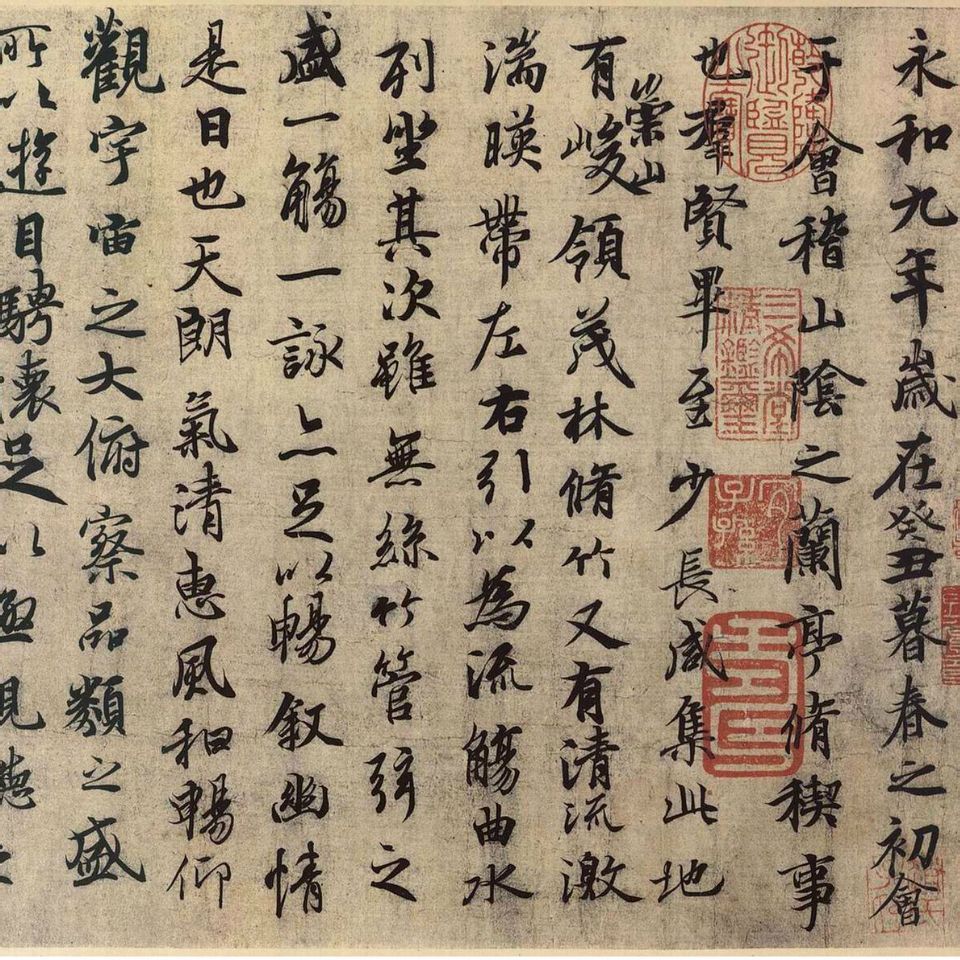 永和九年歲在癸丑暮春之初會
于會稽山陰之蘭亭脩稧事
也羣賢畢至少長咸集此地
有崇山峻領茂林脩竹又有清流激
湍暎帶左右引以為流觴曲水
列坐其次雖無絲竹管弦之
盛一觴一詠亦足以暢敘幽情
是日也天朗氣清惠風和暢仰
觀宇宙之大俯察品類之盛
所以遊目騁懷足以極視聽之
乾隆御覽之寶
三希堂精鑑璽
宜子孫